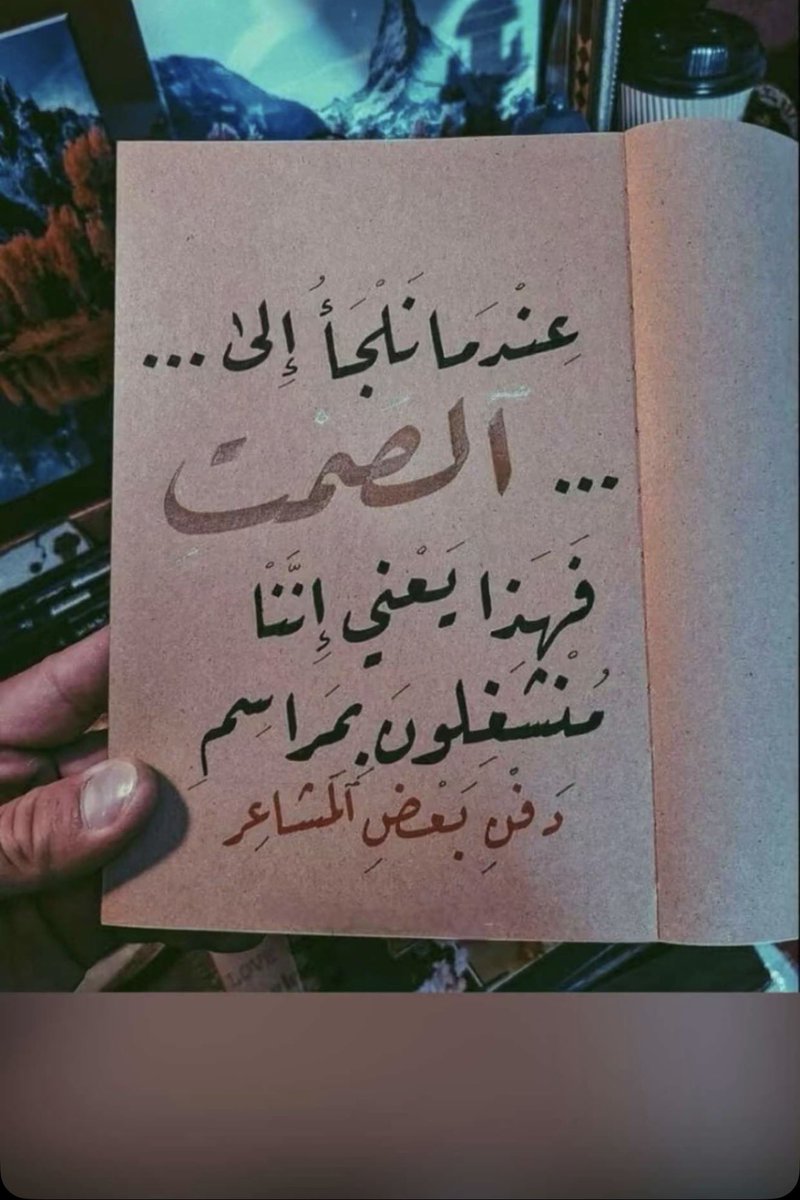 عِنْدَمَا نَلْجَأُ إِلىٰ ...
... ٱلصَّمْتِ
فَهَذَا يَعْني إِنَّنْا
مُنْشَغِلونَ بِمَراسِمِ
دَفْنِ بَعْضِ ٱلْمَشاعِر
LOVE